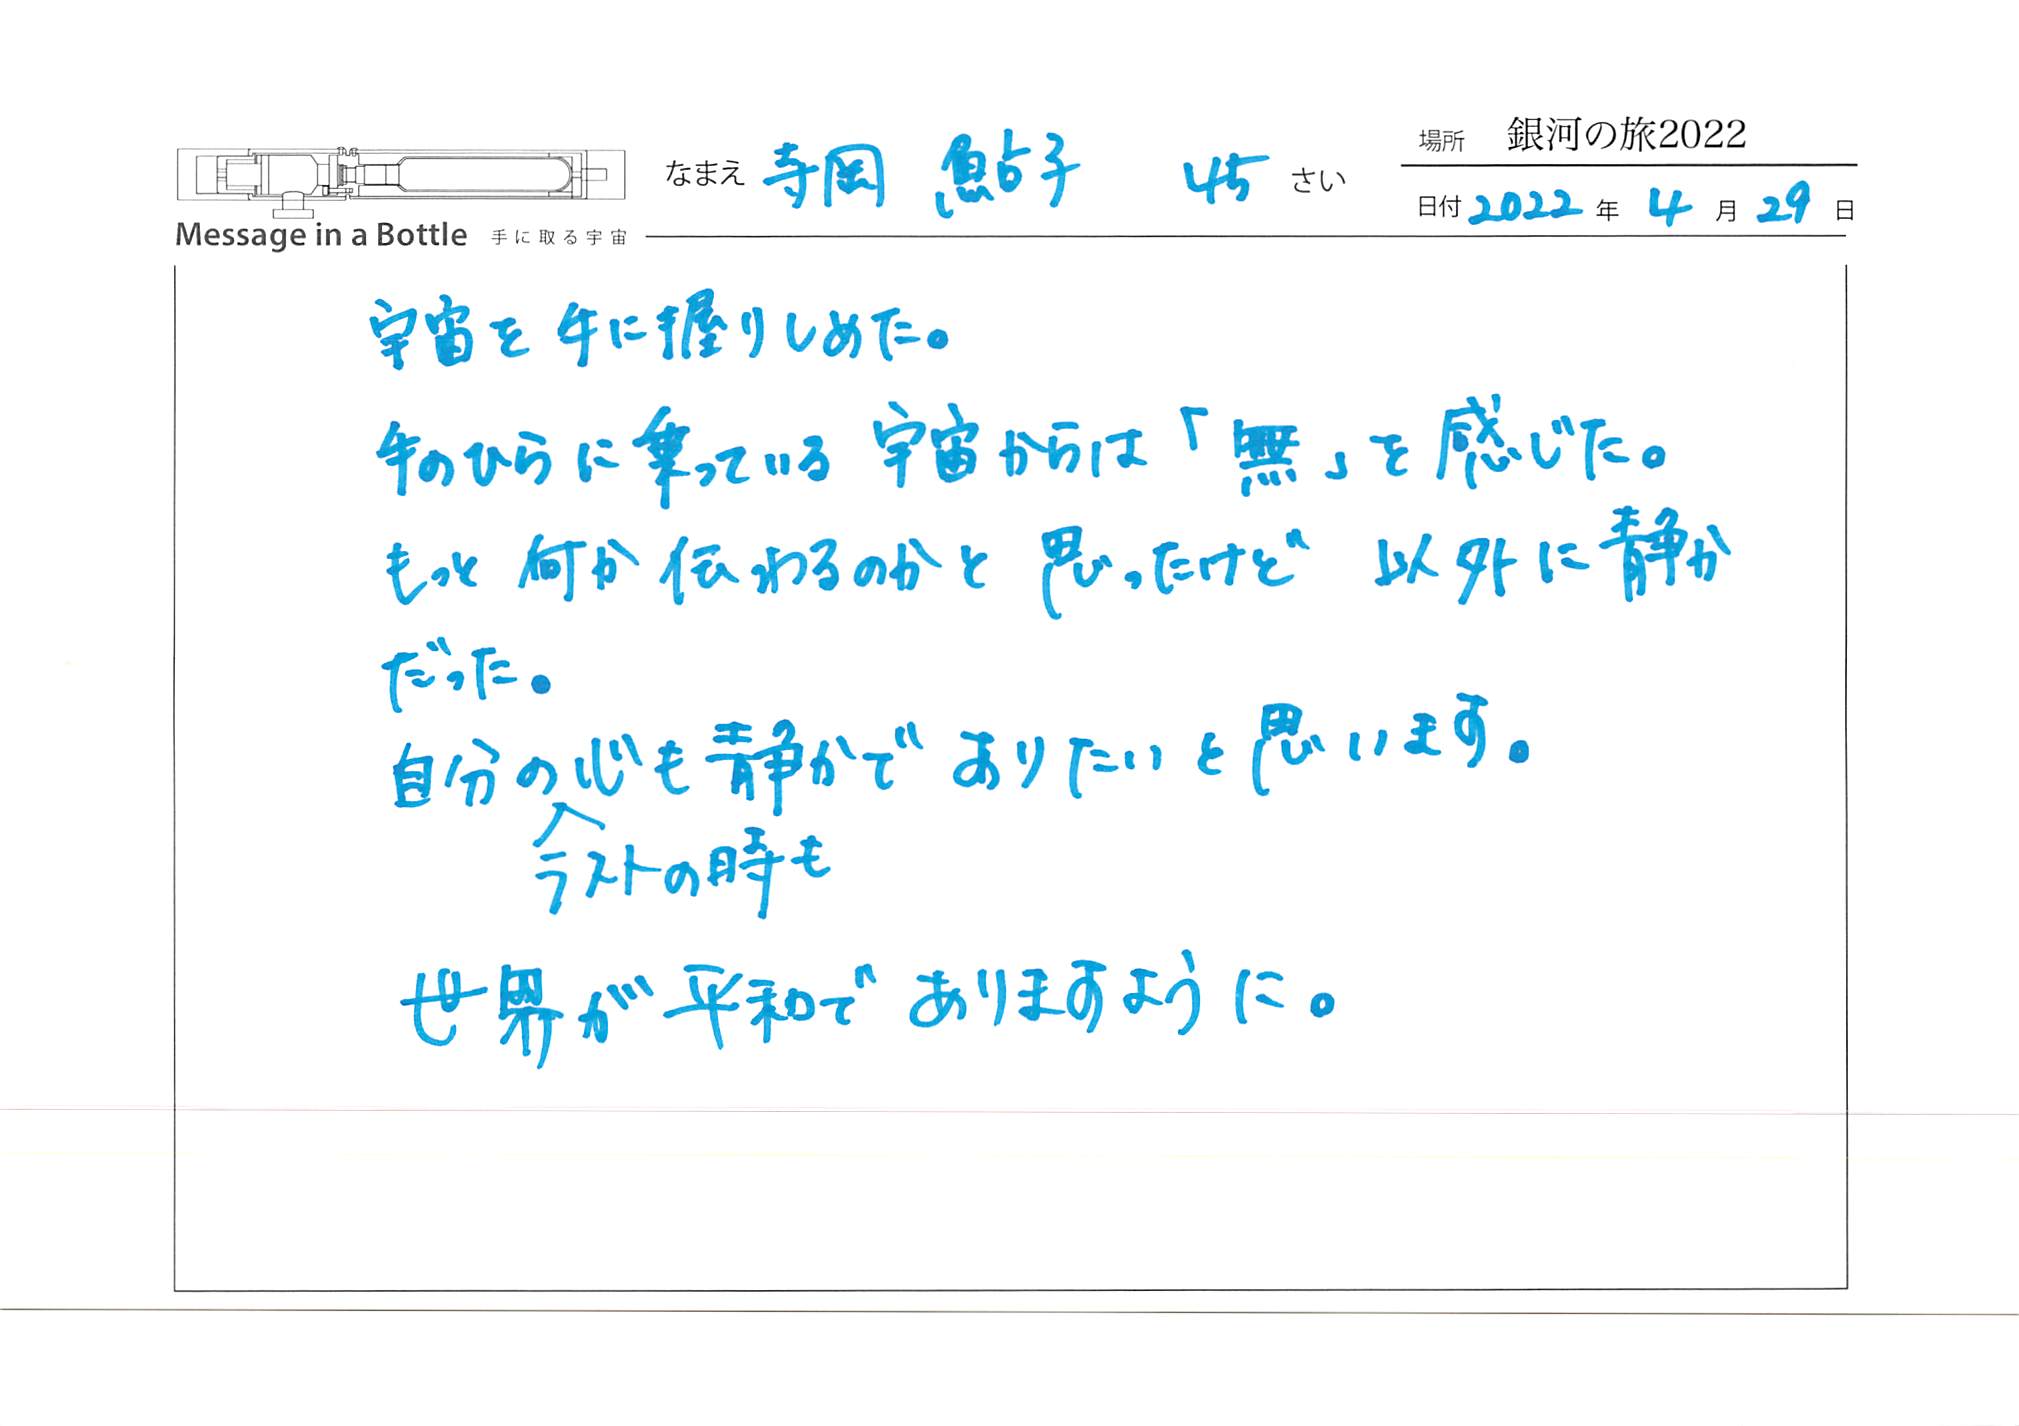 場所 銀河の旅2022
なまえ 寺岡 鮎子 45 さい
日付 2022 年 4 月 29 日
Message in a Bottle 手に取る宇宙
宇宙を手に握りしめた。
手のひらに乗っている宇宙からは「無」を感じた。
もっと何か伝わるのかと思ったけど 以外に静か
だった。
自分の心も静かでありたいと思います。
ラストの時も
世界が平和でありますように。